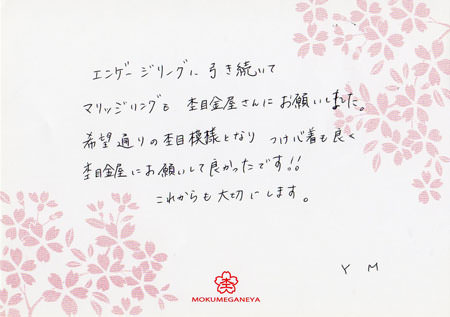 エンゲージリングに引き続いて
マリッジリングも 杢目金屋さんにお願いしました。
希望通りの杢目模様となり つけ心着も良く
杢目金屋にお願いして良かったです!!
これからも大切にします。
Y M
MOKUMEGANEYA